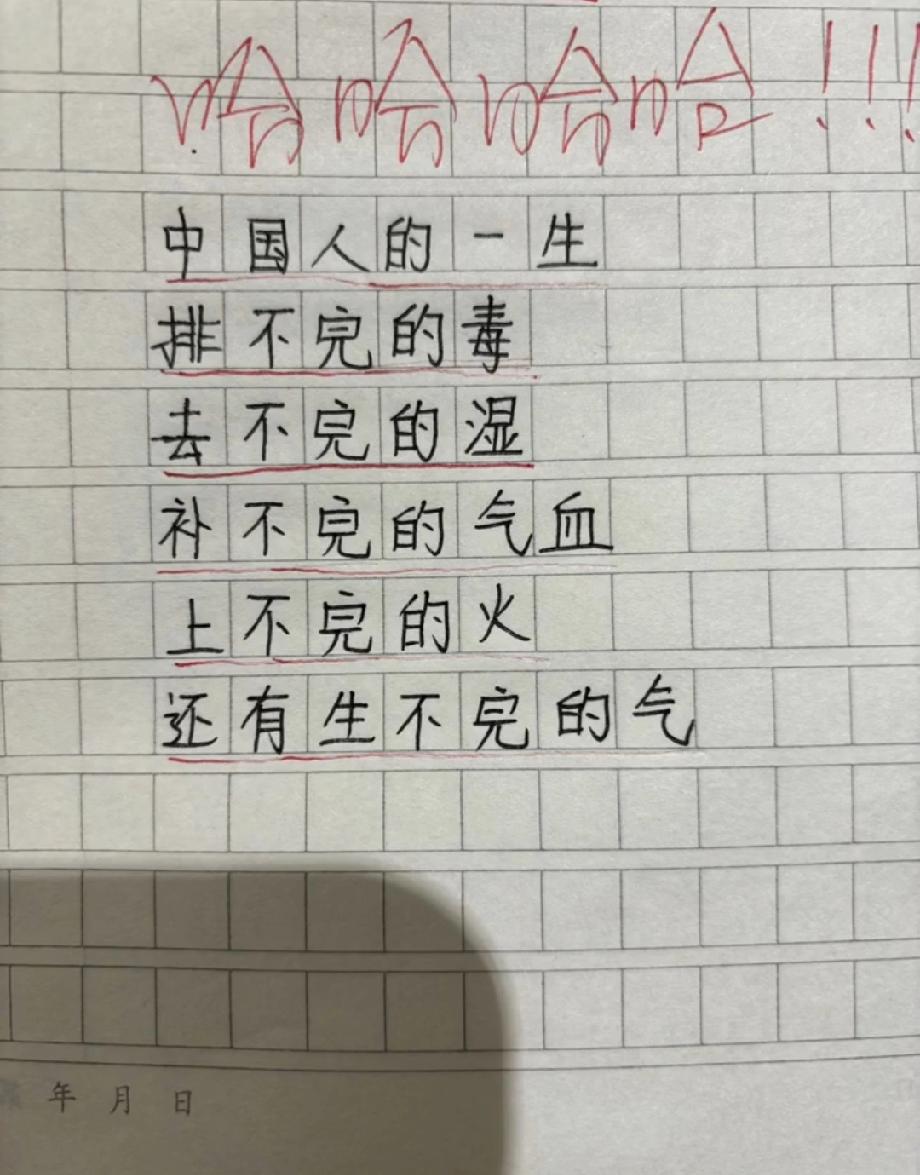 哈哈哈哈!!!
中国人的一生
排不完的毒
去不完的湿
补不完的气血
上不完的火
还有生不完的气
年 月 日